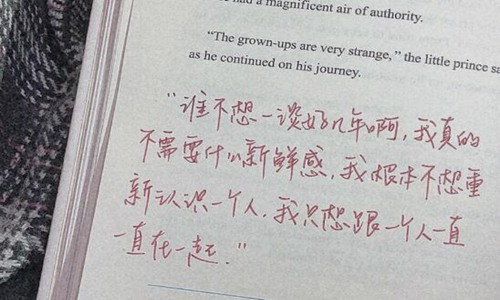 had a magnificent air of authority.
"The grown-ups are very strange," the little prince sa
as he continued on his journey.
"谁不想一谈好几年啊,我真的
不需要什么新鲜感,我根本不想重
新认识一个人,我只想跟一个人一直
一直在一起."